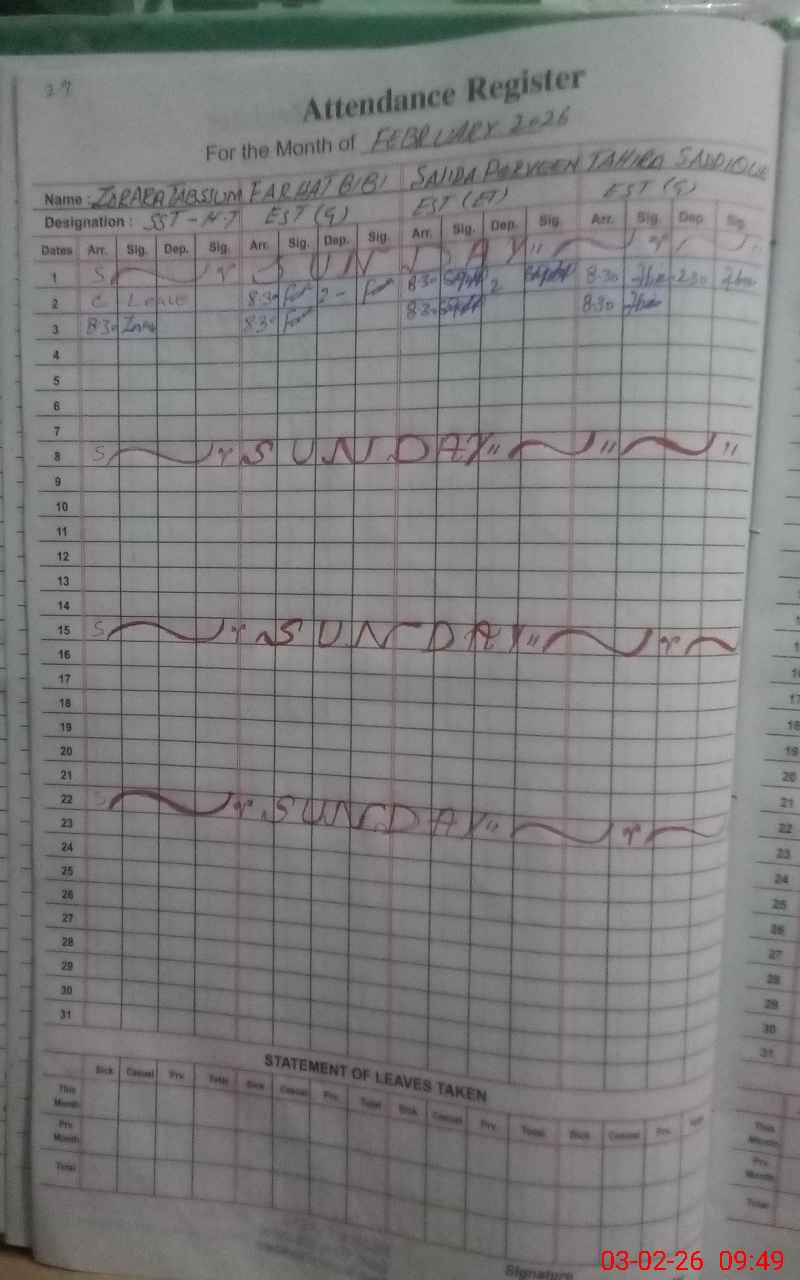 27
Attendance Register
For the Month of FEBRUARY 2026
Name : ZARARA TABSSUM FARHAT BIBI SAJIDA PARVEEN TAHIRA SADDIQUE
Designation : SST - EST (G) EST (ET) EST (G)
Dates Arr. Sig. Dep. Sig. Arr. Sig. Dep. Sig. Arr. Sig. Dep. Sig. Arr. Sig. Dep. Sig.
1 S SUNDAY "
2 C Leave 8:30 2 - 8:30 2 8:30 2:30
3 8:30 8:30 8:30 8:30
4
5
6
7
8 S SUNDAY " " "
9
10
11
12
13
14
15 S SUNDAY "
16
17
18
19
20
21
22 S SUNDAY "
23
24
25
26
27
28
29
30
31
STATEMENT OF LEAVES TAKEN
Sick Casual Prv. Total Sick Casual Prv. Total Sick Casual Prv. Total Sick Casual Prv.
This Month
Prv. Month
Total
Signature
18
19
20
21
22
23
24
25
26
27
28
29
30
31
This Month
Prv. Month
Total
03-02-26 09:49